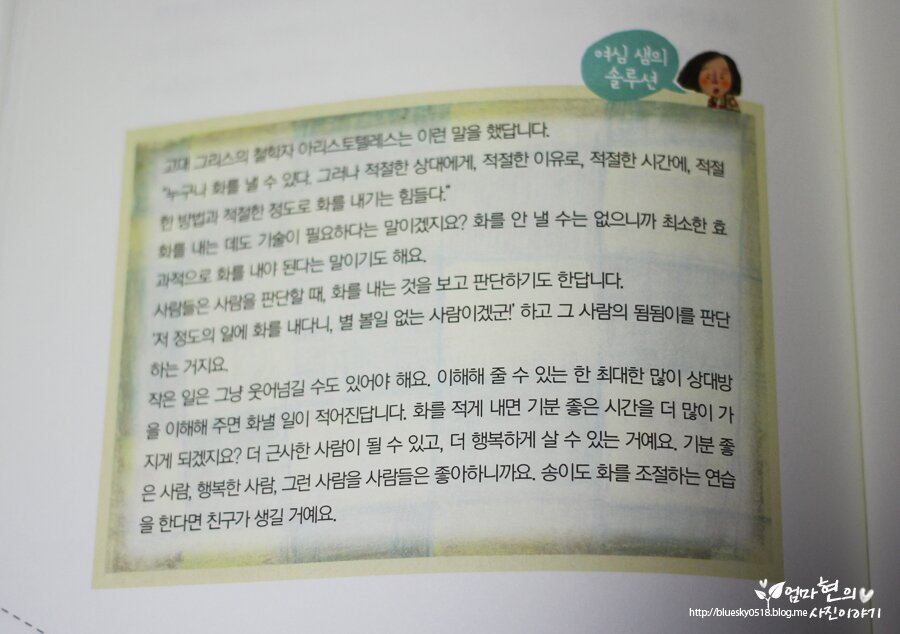 여심 샘의
솔루션
고대 그리스의 철학자 아리스토텔레스는 이런 말을 했답니다.
"누구나 화를 낼 수 있다. 그러나 적절한 상대에게, 적절한 이유로, 적절한 시간에, 적절
한 방법과 적절한 정도로 화를 내기는 힘들다."
화를 내는 데도 기술이 필요하다는 말이겠지요? 화를 안 낼 수는 없으니까 최소한 효
과적으로 화를 내야 된다는 말이기도 해요.
사람들은 사람을 판단할 때, 화를 내는 것을 보고 판단하기도 한답니다.
'저 정도의 일에 화를 내다니, 별 볼일 없는 사람이겠군!' 하고 그 사람의 됨됨이를 판단
하는 거지요.
작은 일은 그냥 웃어넘길 수도 있어야 해요. 이해해 줄 수 있는 한 최대한 많이 상대방
을 이해해 주면 화낼 일이 적어진답니다. 화를 적게 내면 기분 좋은 시간을 더 많이 가
지게 되겠지요? 더 근사한 사람이 될 수 있고, 더 행복하게 살 수 있는 거예요. 기분 좋
은 사람, 행복한 사람, 그런 사람을 사람들은 좋아하니까요. 송이도 화를 조절하는 연습
을 한다면 친구가 생길 거예요.
엄마 현의
http://bluesky0518.blog.me 사진이야기